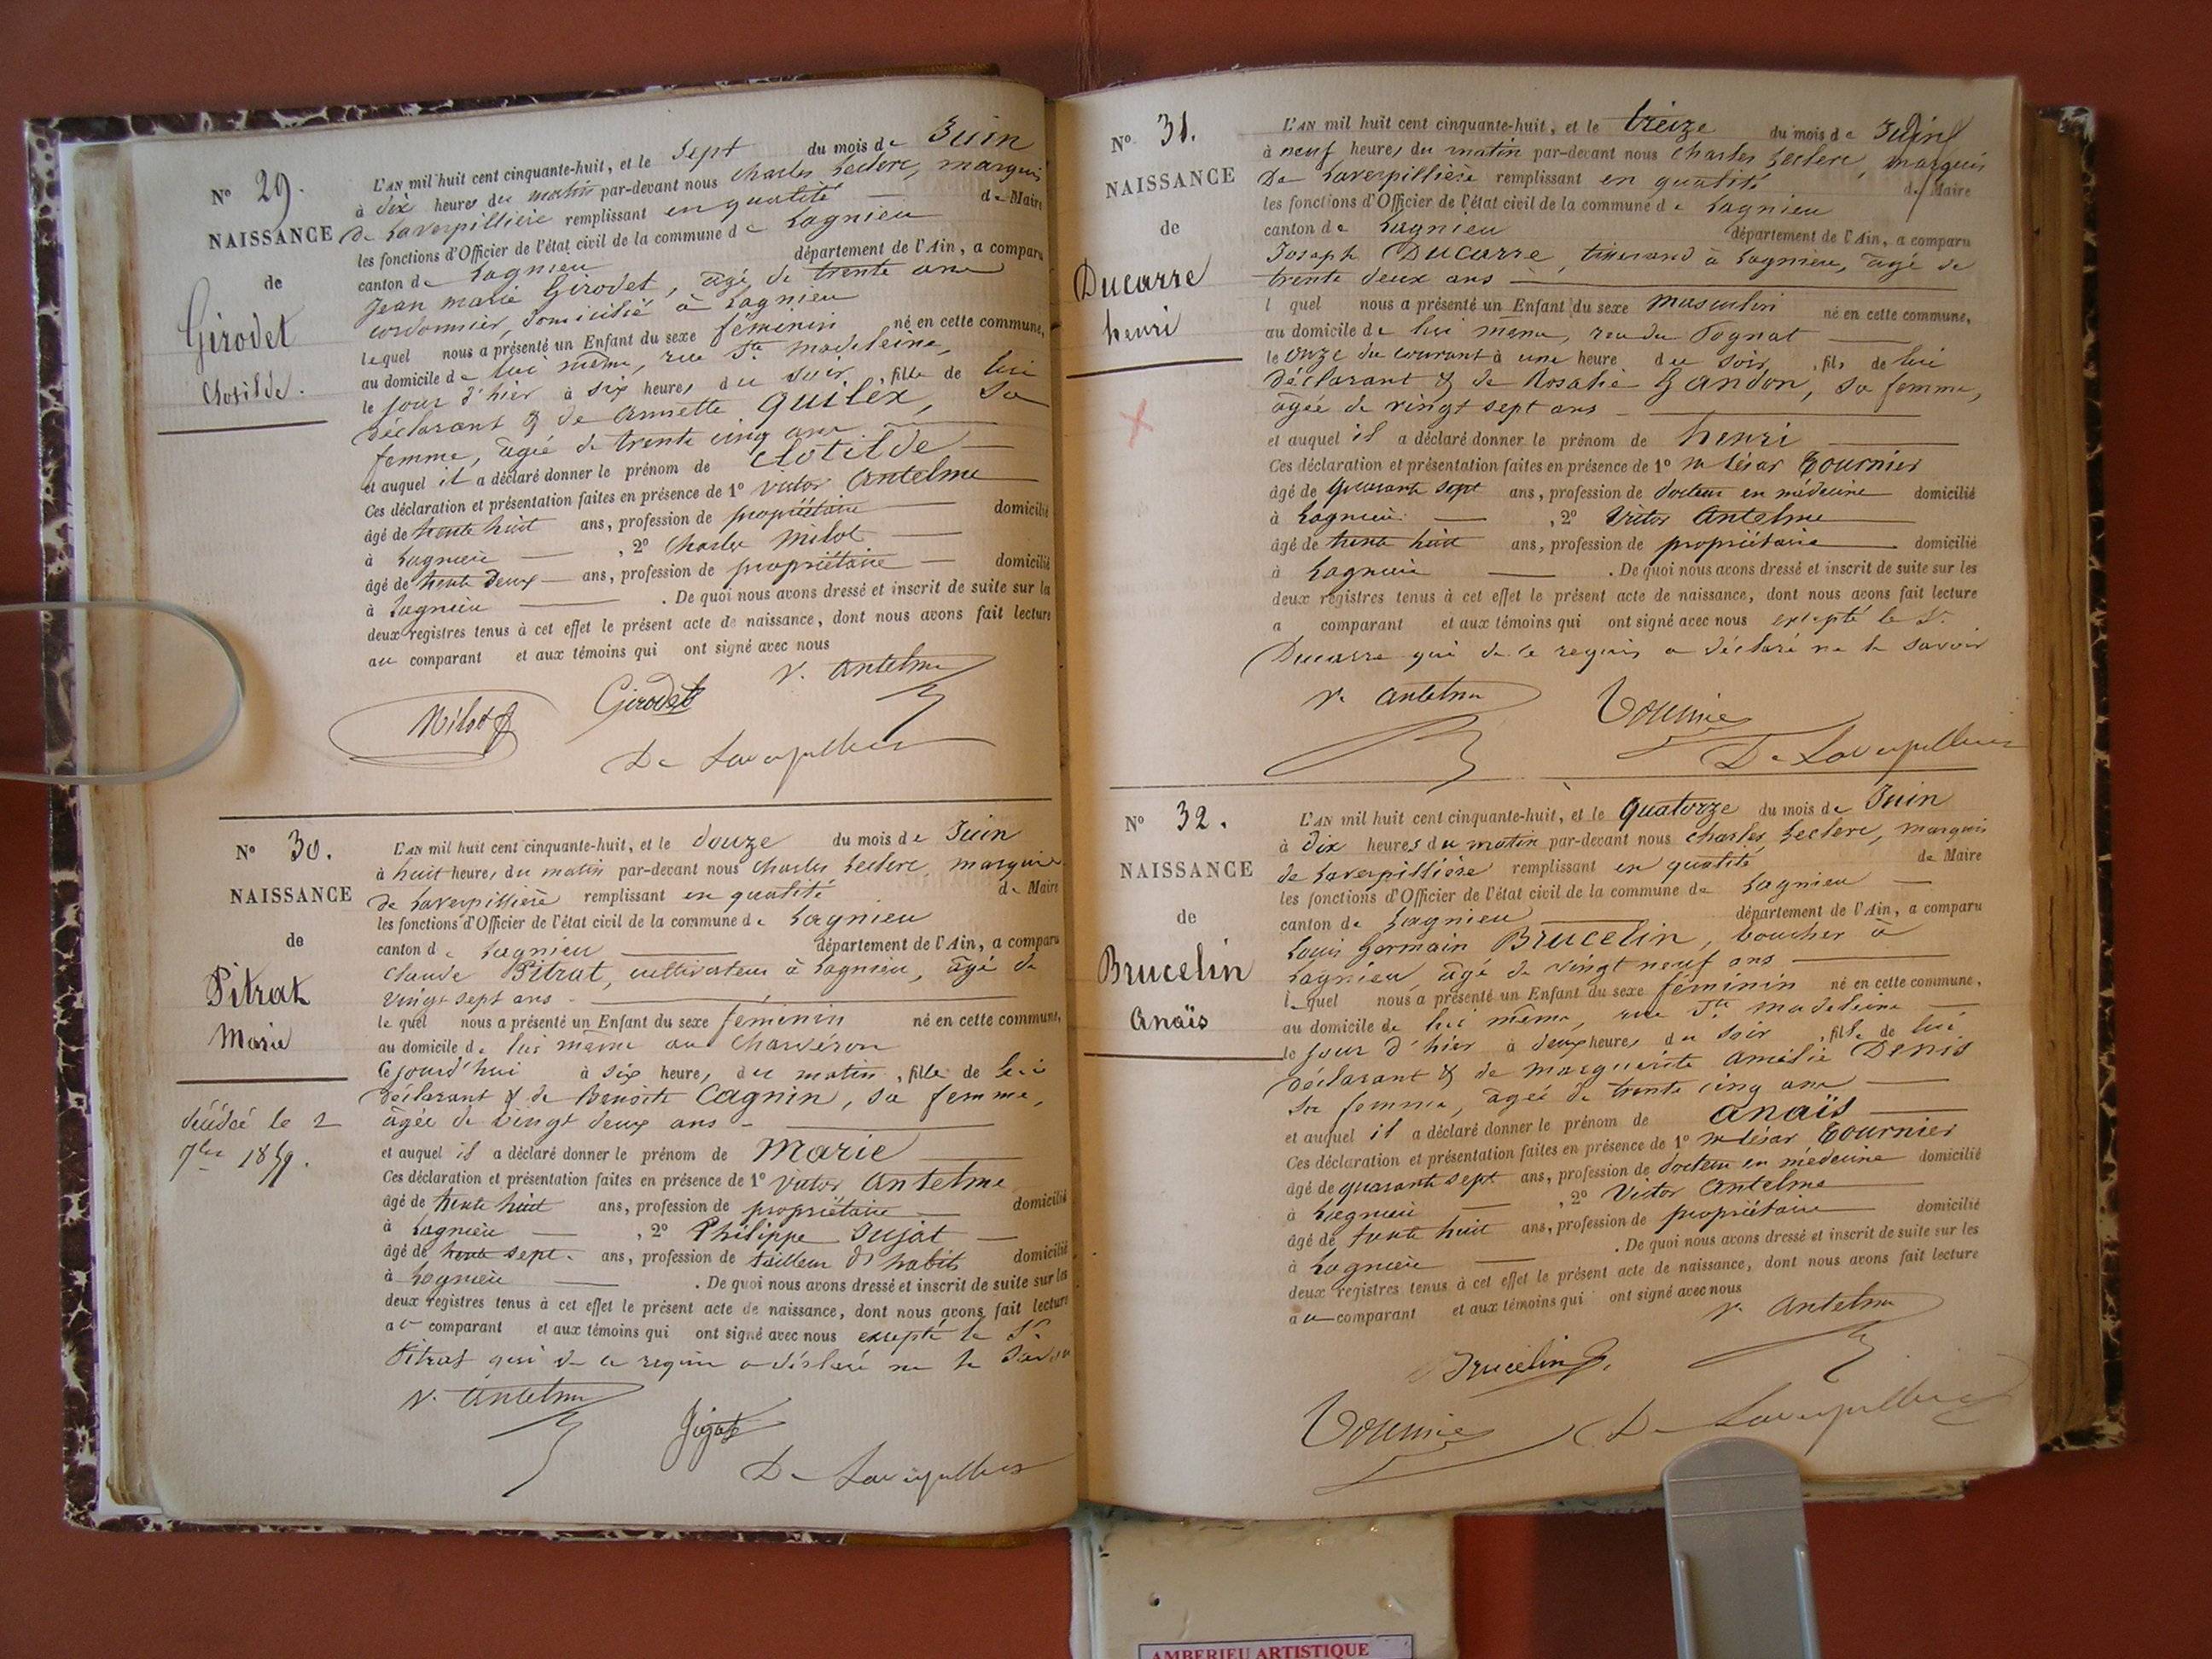 N° 29.
NAISSANCE
de
Girodet
Clotilde.
L'AN mil huit cent cinquante-huit, et le sept du mois de Juin
à dix heures du matin par-devant nous Charles Leclerc, marquis
de Laverpillière remplissant en qualité de Maire
les fonctions d'Officier de l'état civil de la commune de Lagnieu
canton de Lagnieu département de l'Ain, a comparu
Jean marie Girodet, âgé de trente ans
cordonnier, domicilié à Lagnieu
lequel nous a présenté un Enfant du sexe féminin né en cette commune,
au domicile de lui même, rue Ste madeleine,
le jour d'hier à six heures du soir, fille de lui
déclarant & de Annette Guilex, sa
femme, âgée de trente cinq ans
et auquel il a déclaré donner le prénom de Clotilde
Ces déclaration et présentation faites en présence de 1° Victor Antelme
âgé de trente huit ans, profession de propriétaire domicilié
à Lagnieu, 2° Charles Milot
âgé de trente deux ans, profession de propriétaire domicilié
à Lagnieu. De quoi nous avons dressé et inscrit de suite sur les
deux registres tenus à cet effet le présent acte de naissance, dont nous avons fait lecture
au comparant et aux témoins qui ont signé avec nous
V. Antelme
Milot Girodet
De Laverpilliere
N° 30.
NAISSANCE
de
Pitrat
Marie
décédée le 2
7bre 1859.
L'AN mil huit cent cinquante-huit, et le douze du mois de Juin
à huit heures du matin par-devant nous Charles Leclerc, marquis
de Laverpillière remplissant en qualité de Maire
les fonctions d'Officier de l'état civil de la commune de Lagnieu
canton de Lagnieu département de l'Ain, a comparu
Claude Pitrat, cultivateur à Lagnieu, âgé de
vingt sept ans
lequel nous a présenté un Enfant du sexe féminin né en cette commune,
au domicile de lui même au Charvéron
cejourd'hui à six heures du matin, fille de lui
déclarant & de Benoite Cagnin, sa femme,
âgée de vingt deux ans
et auquel il a déclaré donner le prénom de Marie
Ces déclaration et présentation faites en présence de 1° Victor Antelme
âgé de trente huit ans, profession de propriétaire domicilié
à Lagnieu, 2° Philippe Jujat
âgé de trente sept ans, profession de tailleur d'habits domicilié
à Lagnieu. De quoi nous avons dressé et inscrit de suite sur les
deux registres tenus à cet effet le présent acte de naissance, dont nous avons fait lecture
au comparant et aux témoins qui ont signé avec nous excepté le Sr
Pitrat qui de ce requis a déclaré ne le savoir
V. Antelme
Jujat
De Laverpilliere
N° 31.
NAISSANCE
de
Ducarre
henri
L'AN mil huit cent cinquante-huit, et le treize du mois de Juin
à neuf heures du matin par-devant nous Charles Leclerc, marquis
De Laverpillière remplissant en qualité de Maire
les fonctions d'Officier de l'état civil de la commune de Lagnieu
canton de Lagnieu département de l'Ain, a comparu
Joseph Ducarre, tisserand à Lagnieu, âgé de
trente deux ans
lquel nous a présenté un Enfant du sexe masculin né en cette commune,
au domicile de lui même, rue du Tognat
le onze du courant à une heure du soir, fils de lui
déclarant & de Rosalie Gandon, sa femme,
âgée de vingt sept ans
et auquel il a déclaré donner le prénom de henri
Ces déclaration et présentation faites en présence de 1° Mr César Tournier
âgé de quarante sept ans, profession de docteur en médecine domicilié
à Lagnieu, 2° Victor Antelme
âgé de trente huit ans, profession de propriétaire domicilié
à Lagnieu. De quoi nous avons dressé et inscrit de suite sur les
deux registres tenus à cet effet le présent acte de naissance, dont nous avons fait lecture
a comparant et aux témoins qui ont signé avec nous excepté le Sr
Ducarre qui de ce requis a déclaré ne le savoir
V. Antelme Tournier
De Laverpilliere
N° 32.
NAISSANCE
de
Brucelin
Anaïs
L'AN mil huit cent cinquante-huit, et le quatorze du mois de Juin
à dix heures du matin par-devant nous Charles Leclerc, marquis
de Laverpillière remplissant en qualité de Maire
les fonctions d'Officier de l'état civil de la commune de Lagnieu
canton de Lagnieu département de l'Ain, a comparu
Louis Germain Brucelin, boucher à
Lagnieu, âgé de vingt neuf ans
lequel nous a présenté un Enfant du sexe féminin né en cette commune,
au domicile de lui même, rue Ste Madeleine
le jour d'hier à deux heures du soir, fille de lui
déclarant & de marguerite amélie Denis
sa femme, âgée de trente cinq ans
et auquel il a déclaré donner le prénom de anaïs
Ces déclaration et présentation faites en présence de 1° Mr César Tournier
âgé de quarante sept ans, profession de docteur en médecine domicilié
à Lagnieu, 2° Victor Antelme
âgé de trente huit ans, profession de propriétaire domicilié
à Lagnieu. De quoi nous avons dressé et inscrit de suite sur les
deux registres tenus à cet effet le présent acte de naissance, dont nous avons fait lecture
au comparant et aux témoins qui ont signé avec nous
V. Antelme
Brucelin
Tournier De Laverpilliere
AMBERIEU ARTISTIQUE